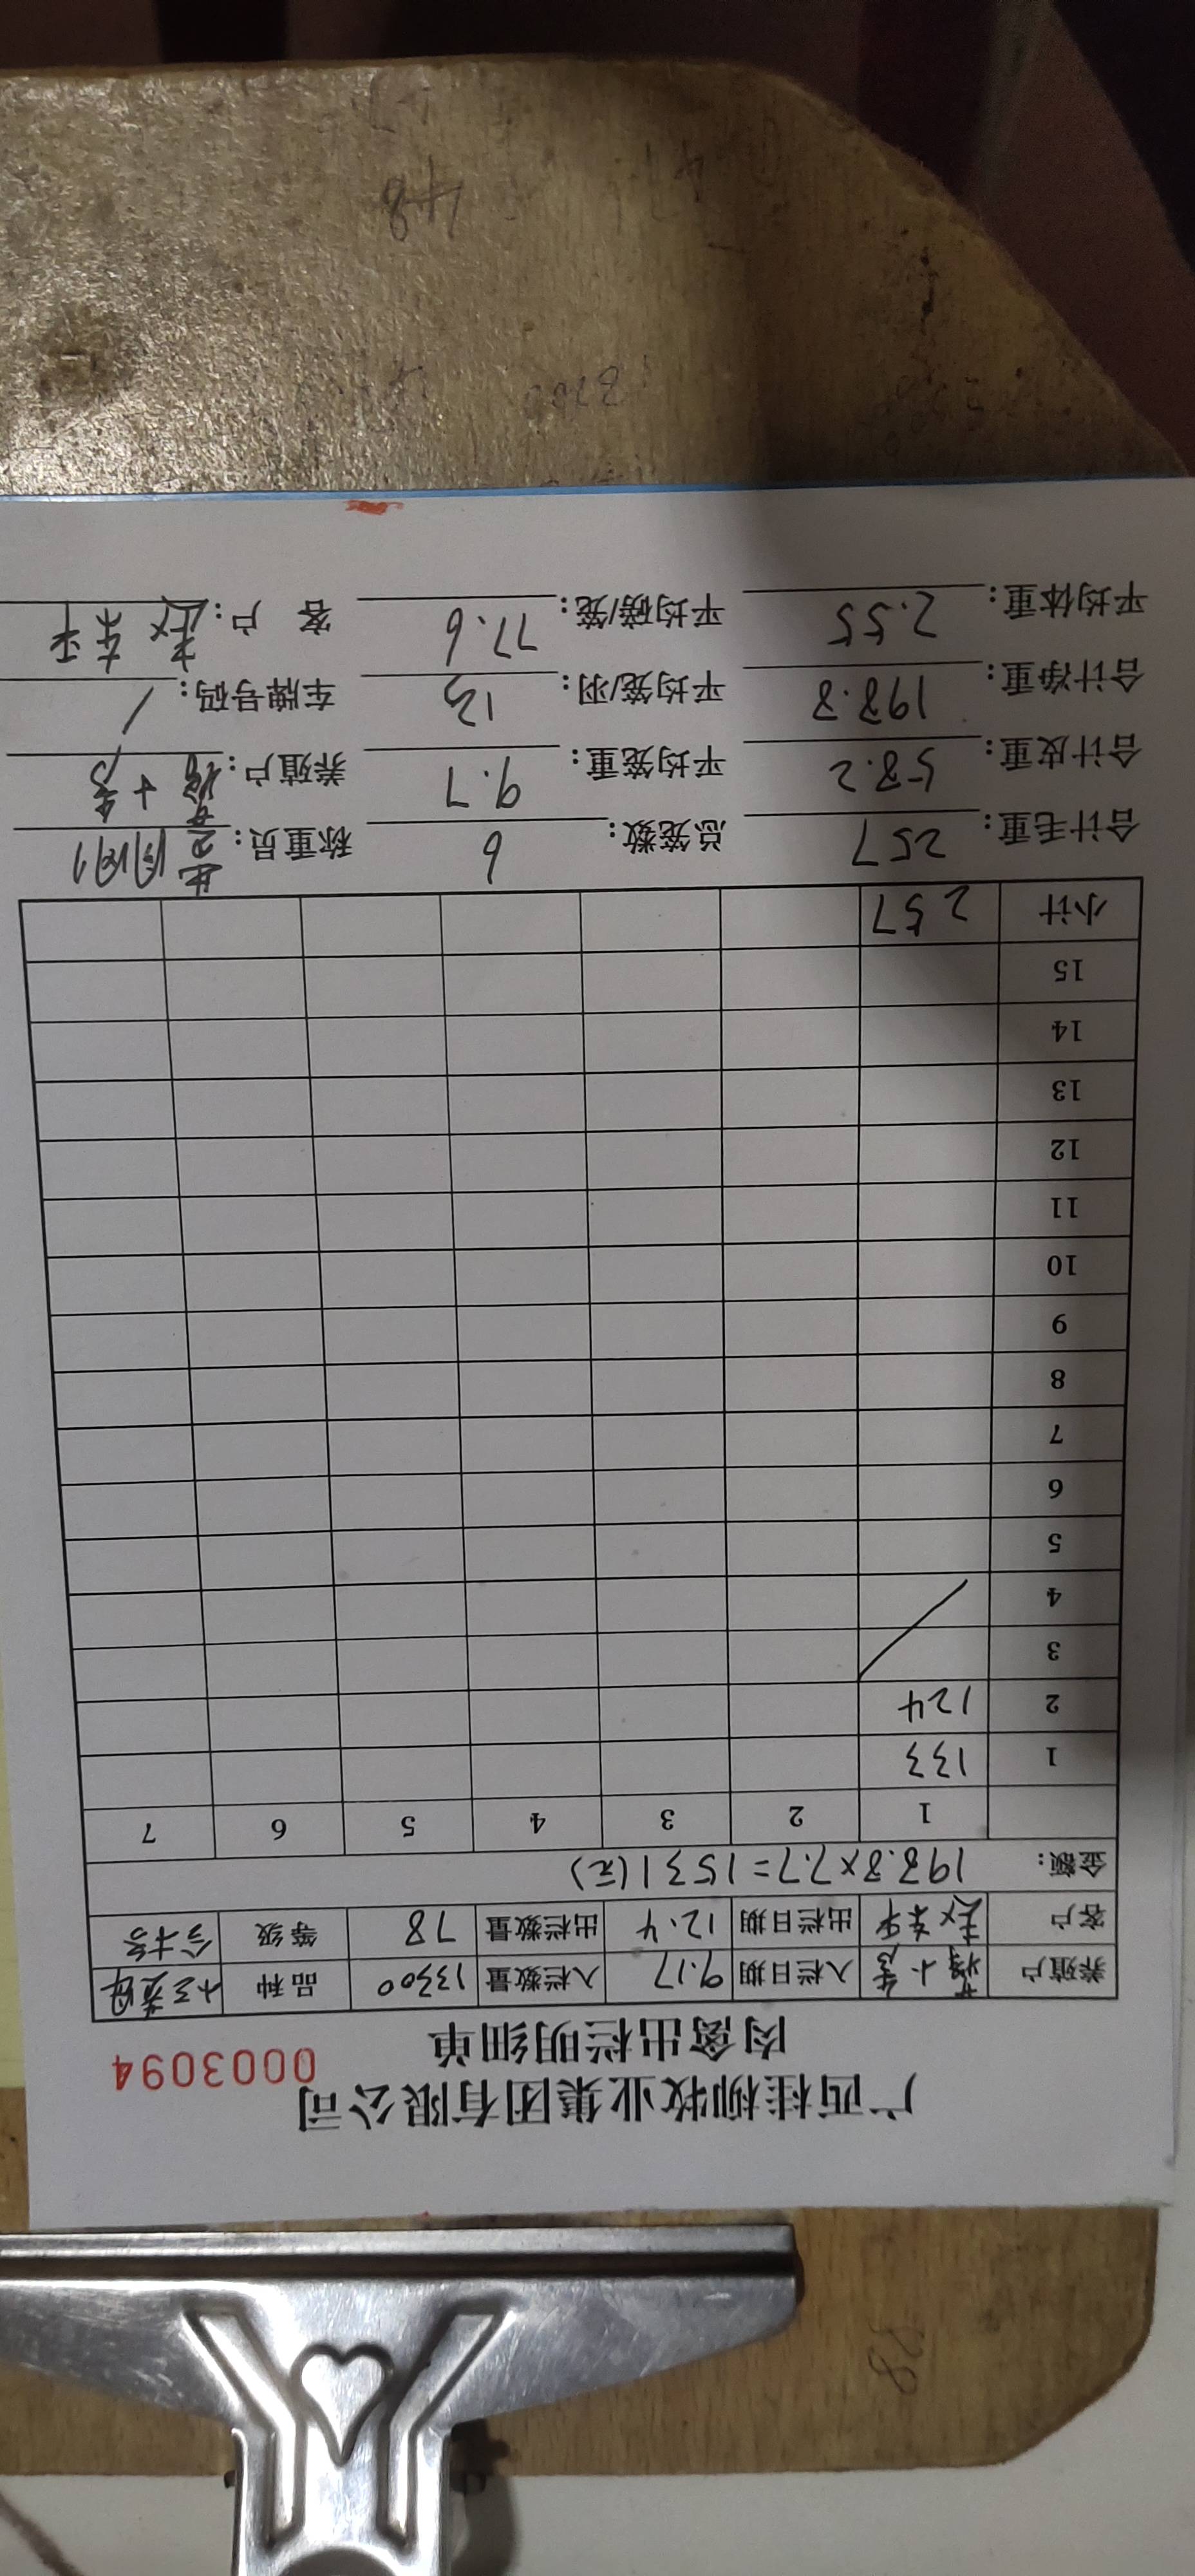 广西桂柳牧业集团有限公司
肉禽出栏明细单
0003094
养殖户 蒋小秀 入栏日期 9.17 入栏数量 13300 品种
客户 赵东平 出栏日期 12.4 出栏数量 78 等级
金额: 198.8×7.7=1531(元)
1 2 3 4 5 6 7
1 133
2 124
3
4
5
6
7
8
9
10
11
12
13
14
15
小计 257
合计毛重: 257 总笼数: 6 称重员:
合计皮重: 58.2 平均笼重: 9.7 养殖户: 蒋小秀
合计净重: 198.8 平均笼/羽: 13 车牌号码: /
平均体重: 2.55 平均磅/笼: 77.6 客 户: 赵东平